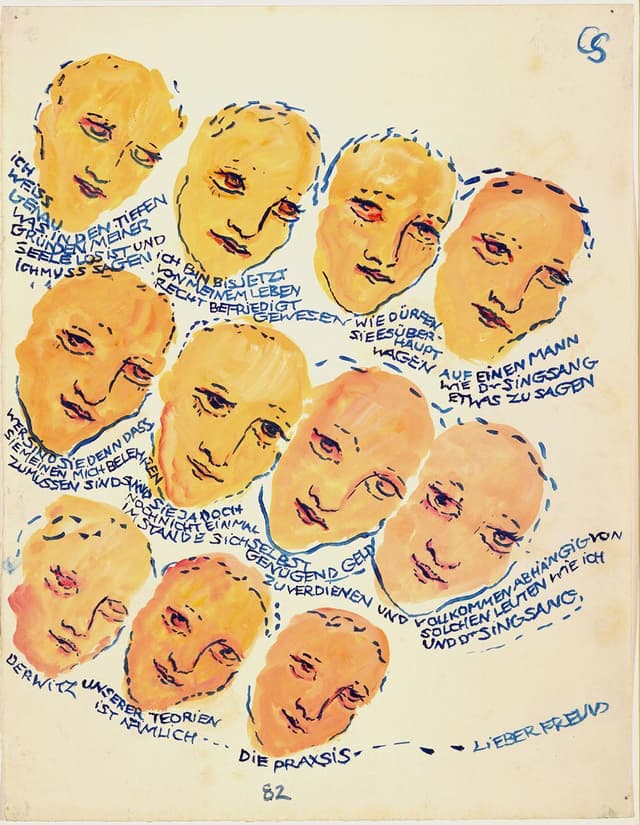 CS
ICH
WEISS
GENAU
WAS IN DEN TIEFEN
GRÜNDEN MEINER
SEELE LOS IST UND
ICH MUSS SAGEN
ICH BIN BIS JETZT
VON MEINEM LEBEN
RECHT BEFRIEDIGT
GEWESEN
WIE DÜRFEN
SIE ES ÜBER-
HAUPT
WAGEN
AUF EINEN MANN
WIE Dr SINGSANG
ETWAS ZU SAGEN
WER SIND SIE DENN DASS
SIE MEINEN MICH BELEHREN
ZU MÜSSEN SIND
SIND SIE JA DOCH
NOCH NICHT EINMAL
IM STANDE SICH SELBST
GENÜGEND GELD
ZU VERDIENEN UND VOLLKOMMEN ABHÄNGIG VON
SOLCHEN LEUTEN WIE ICH
UND Dr SINGSANG,
DER WITZ UNSERER TEORIEN
IST NÄMLICH ---
DIE PRAXSIS --- LIEBER FREUND
82